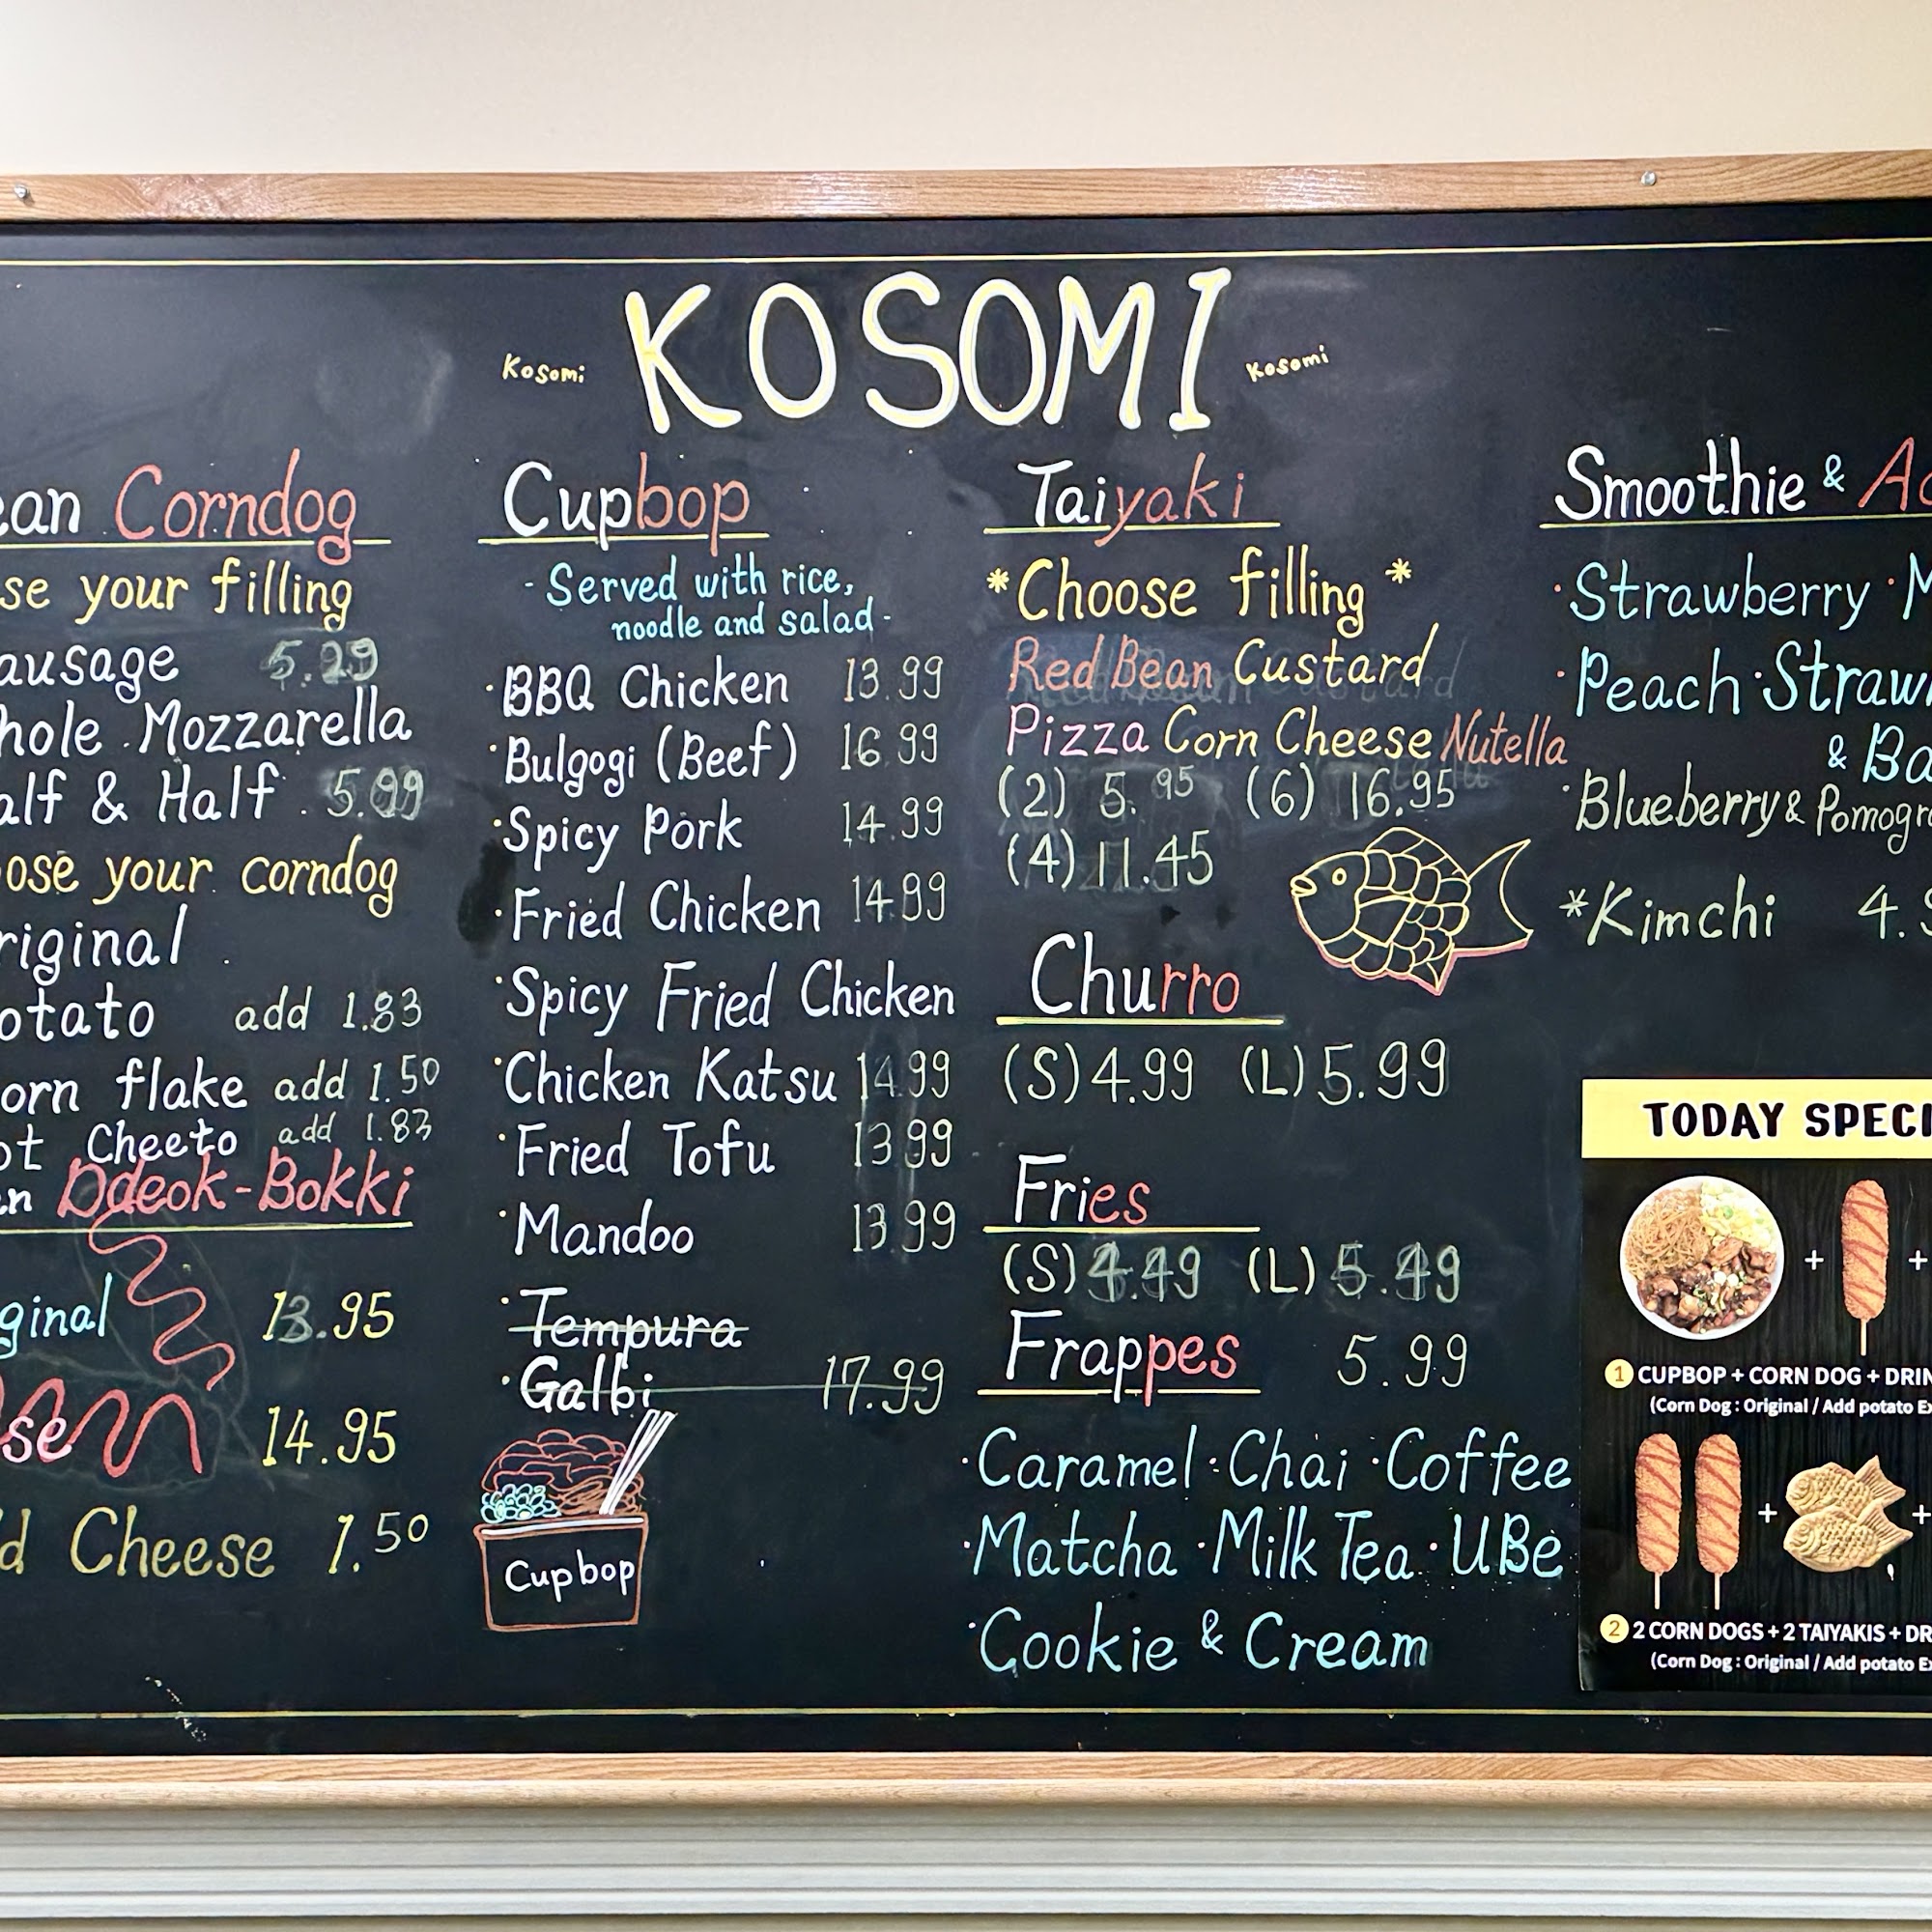 KOSOMI
Kosomi
Kosomi
Corndog
your filling
5.99
Mozzarella
& Half 5.99
your corndog
add 1.83
flake add 1.50
Cheeto add 1.83
Ddeok-Bokki
13.95
14.95
Cheese 1.50
Cupbop
- Served with rice,
noodle and salad -
·BBQ Chicken 13.99
·Bulgogi (Beef) 16.99
·Spicy Pork 14.99
·Fried Chicken 14.99
·Spicy Fried Chicken
·Chicken Katsu 14.99
·Fried Tofu 13.99
·Mandoo 13.99
·Tempura
·Galbi 17.99
Cupbop
Taiyaki
*Choose filling*
Red Bean Custard
Pizza Corn Cheese Nutella
(2) 5.95 (6) 16.95
(4) 11.45
Churro
(S) 4.99 (L) 5.99
Fries
(S) 4.49 (L) 5.49
Frappes 5.99
·Caramel ·Chai ·Coffee
·Matcha ·Milk Tea ·UBe
·Cookie & Cream
Smoothie &
·Strawberry
·Peach ·
&
·Blueberry &
*Kimchi
TODAY
1 CUPBOP + CORN DOG +
(Corn Dog : Original / Add potato
2 2 CORN DOGS + 2 TAIYAKIS +
(Corn Dog : Original / Add potato